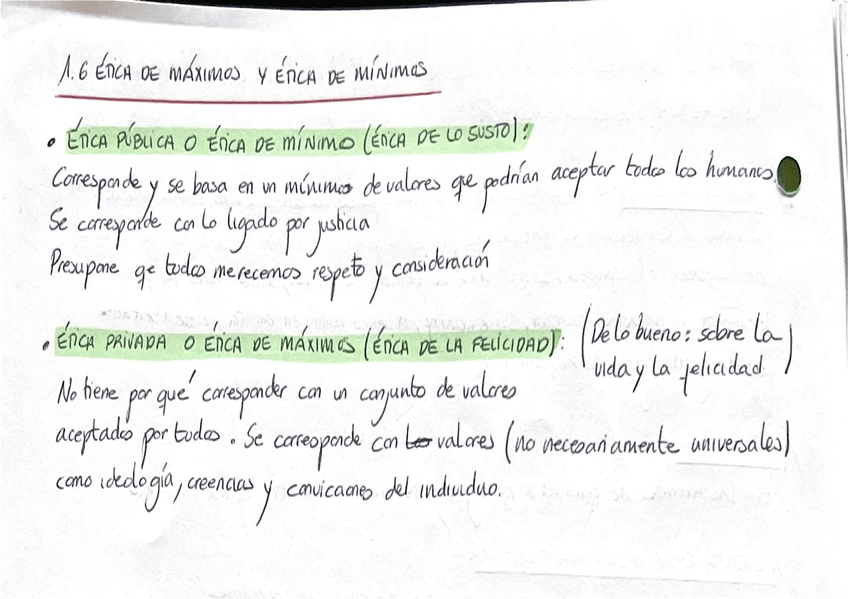 1.6 ÉTICA DE MÁXIMOS Y ÉTICA DE MÍNIMOS
• ÉTICA PÚBLICA O ÉTICA DE MÍNIMO (ÉTICA DE LO SUSTO):
Corresponde y se basa en un mínimos de valores que podrían aceptar todos los humanos.
Se corresponde con lo ligado por justicia
Presupone qe todos merecemos respeto y consideración
• ÉTICA PRIVADA O ÉTICA DE MÁXIMOS (ÉTICA DE LA FELICIDAD): (De lo bueno: sobre la
vida y la felicidad)
No tiene por qué corresponder con un conjunto de valores
aceptados por todos. Se corresponde con los valores (no necesariamente universales)
como ideología, creencias y convicciones del individuo.